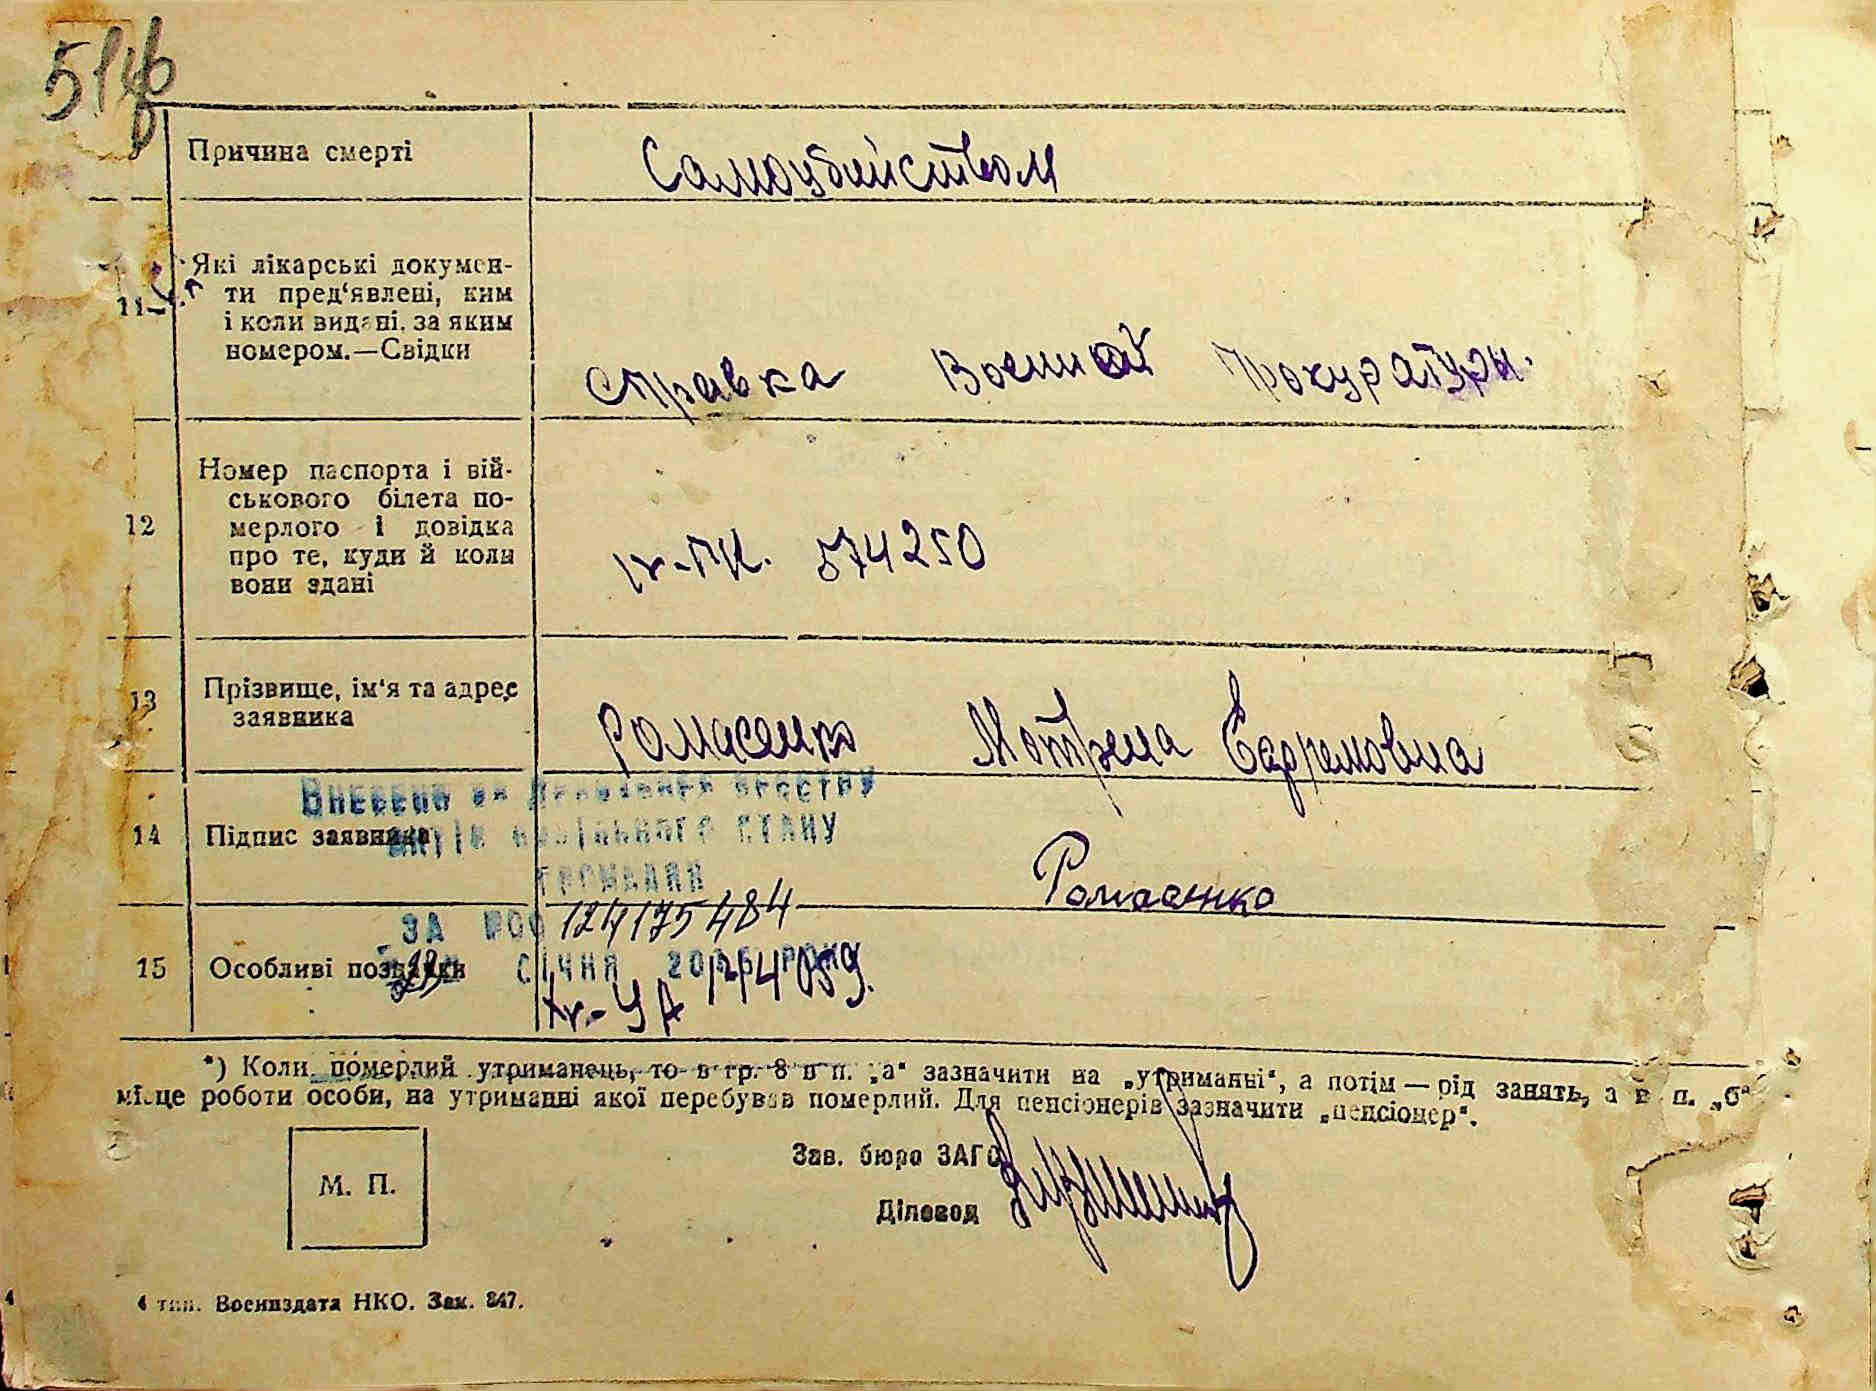 Причина смерті
Самоубийством
11
Які лікарські докумен-
ти пред‘явлені, ким
і коли видані, за яким
номером.—Свідки
справка Военной Прокуратуры.
12
Номер паспорта і вій-
ськового білета по-
мерлого і довідка
про те, куди й коли
вони здані
IV-ПК. 574250
13
Прізвище, ім‘я та адрес
заявника
Ромасенко Мотрена Ефремовна
14
Підпис заявника
Ромасенко
Внесени до Державного реєстру
актів цивільного стану
громадян
ЗА № 00124175484
січня року
15
Особливі позначки
*) Коли померлий утриманець, то в гр. 8 в п. „а“ зазначити на „утриманні“, а потім — рід занять, а в п. „б“
місце роботи особи, на утриманні якої перебував померлий. Для пенсіонерів зазначити „пенсіонер“.
М. П.
Зав. бюро ЗАГС
Діловод
4 тип. Воениздата НКО. Зак. 847.